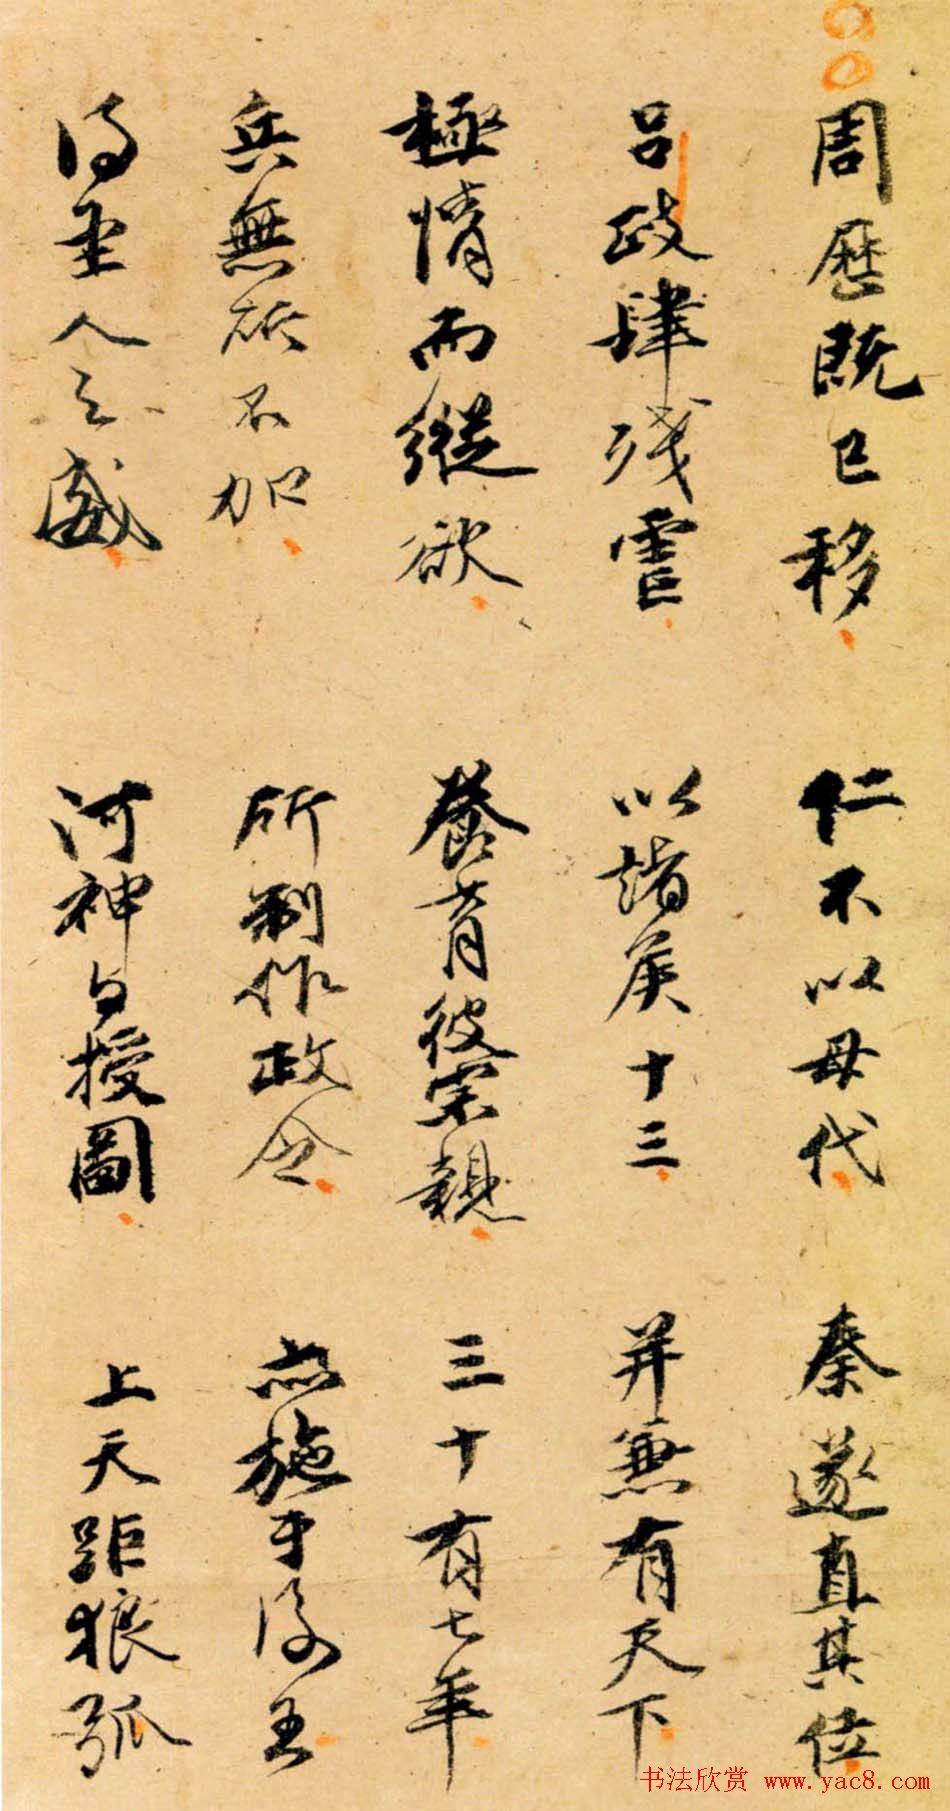 周歷既已移 仁不以母代 秦遂直其位
吕政肆殘虐 以諸矦十三 并兼有天下
極情而縱欲 養育彼宗親 三十有七年
兵無所不加 所制作政令 亦施于後王
得聖人之威 河神自授圖 上天距狼弧
书法欣赏 www.yac8.com